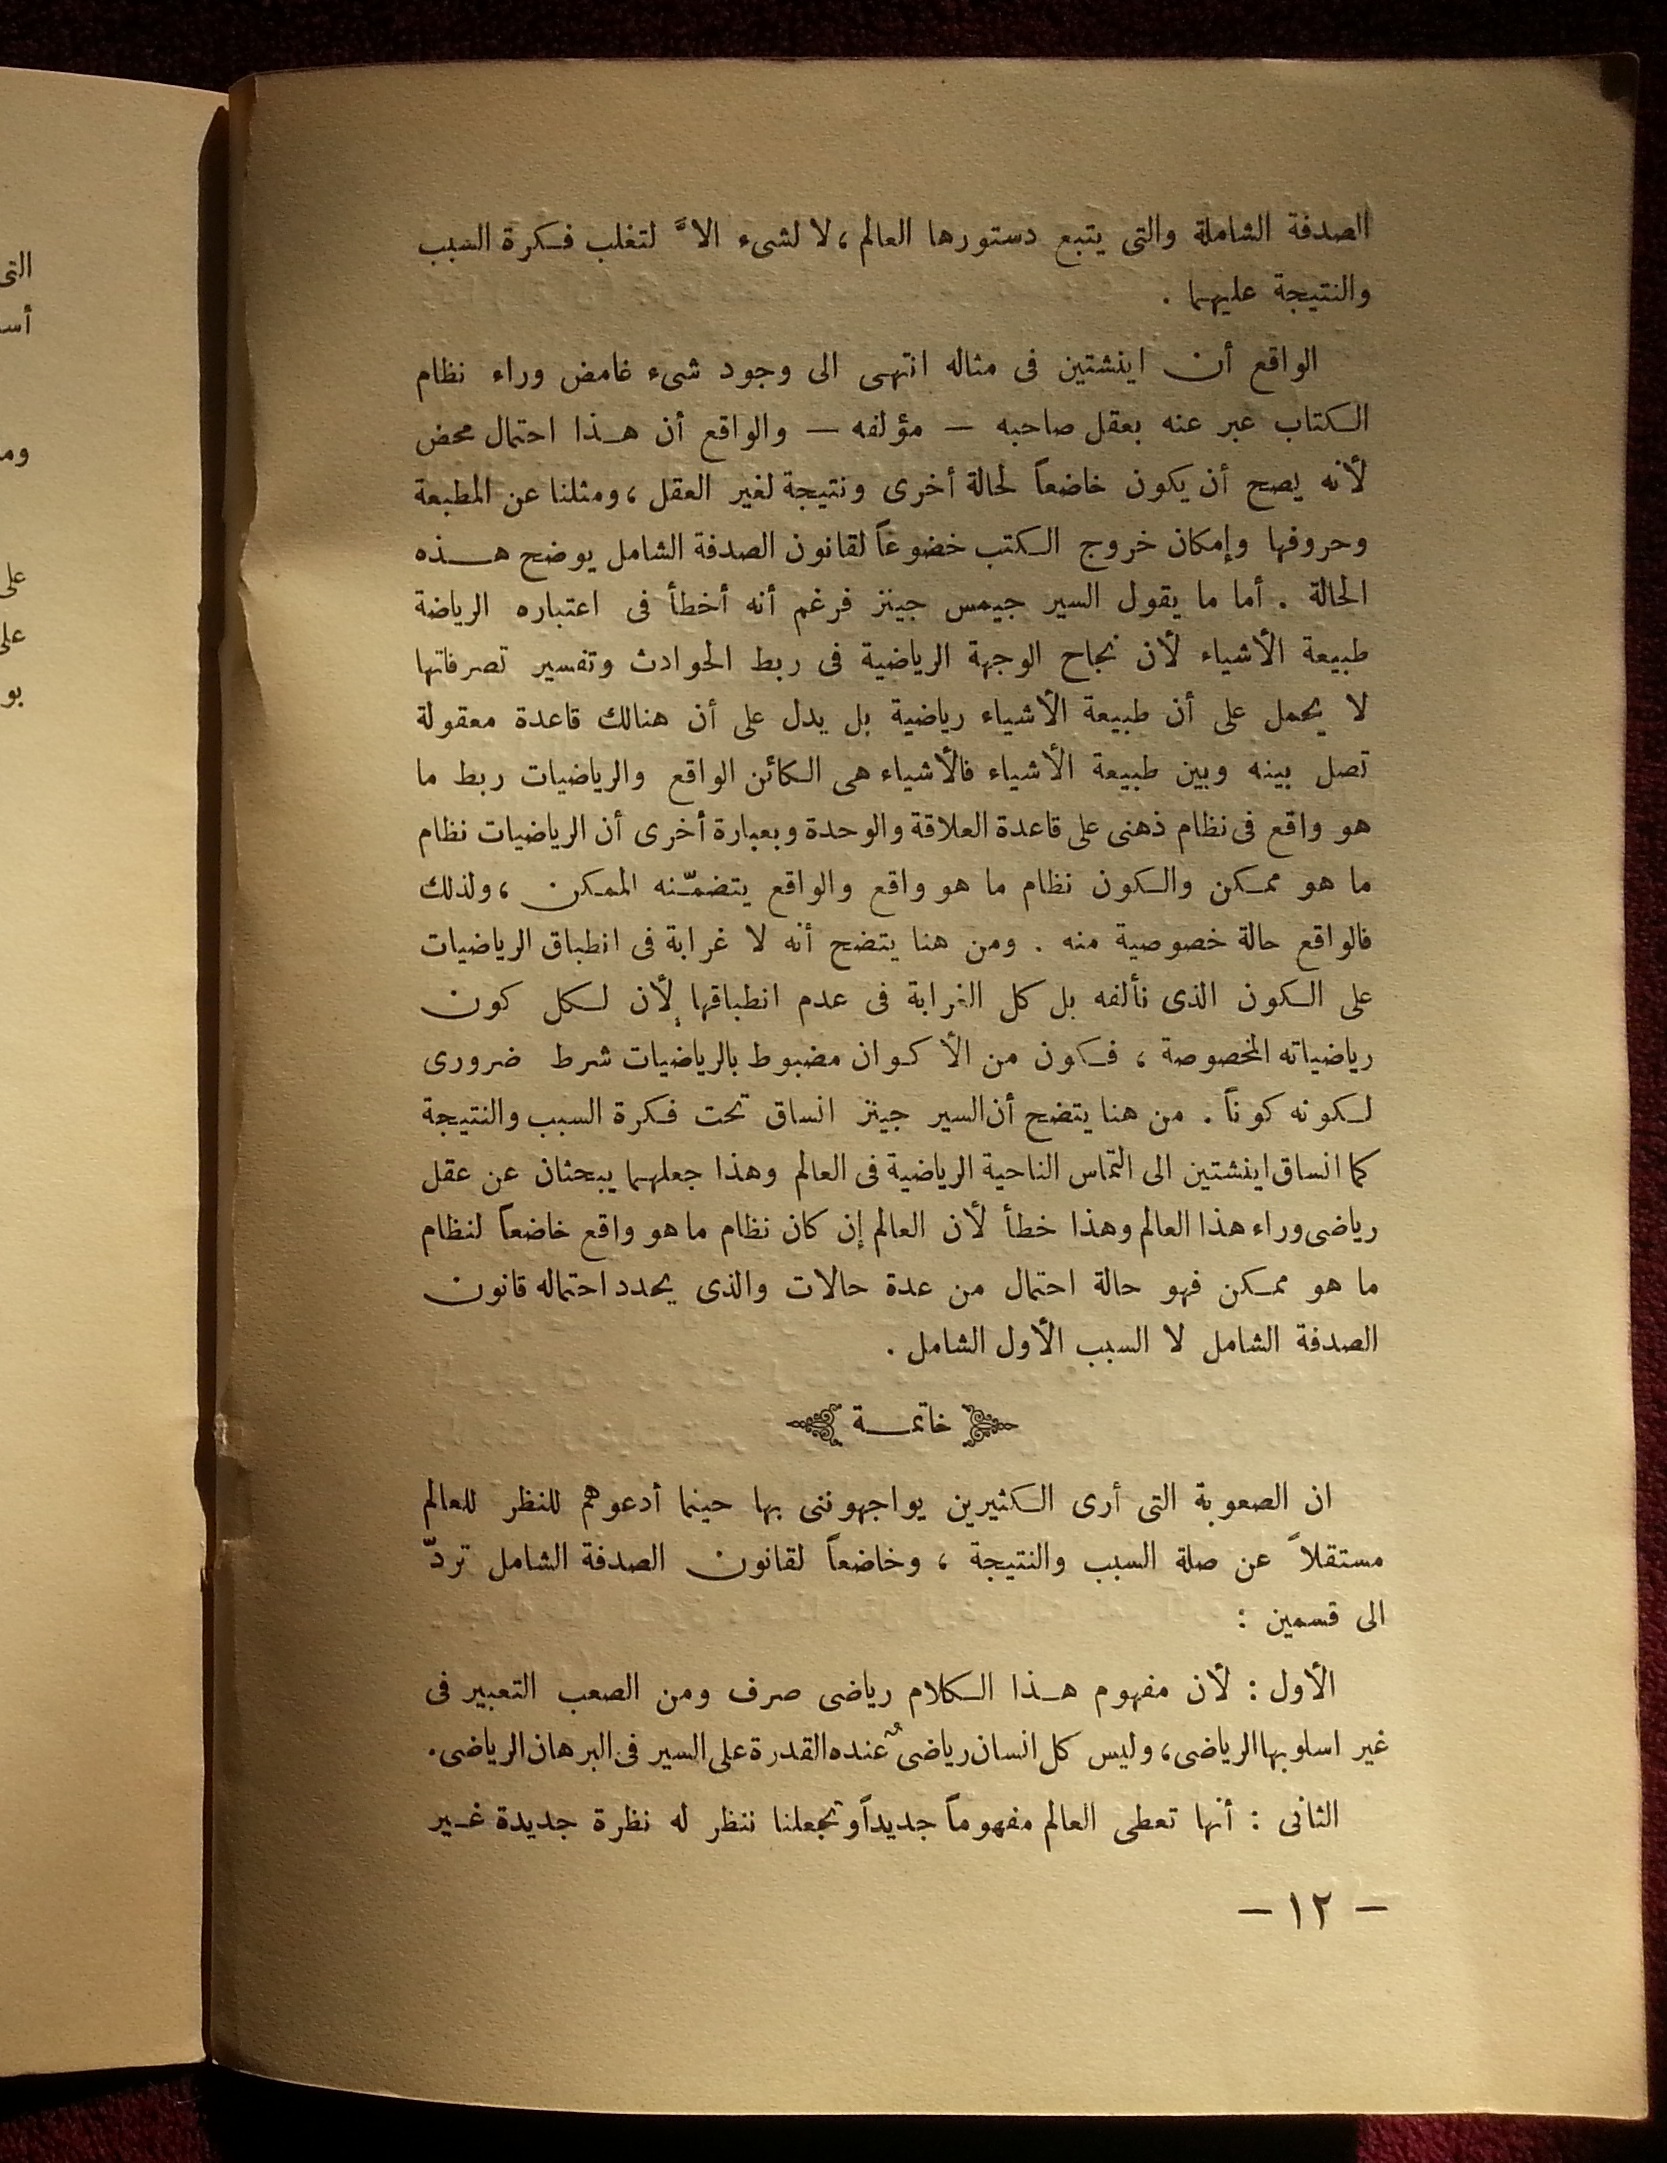 الصدفة الشاملة والتى يتبع دستورها العالم ، لا لشىء الاَّ لتغلب فكرة السبب
والنتيجة عليهما .
الواقع أن اينشتين فى مثاله انتهى الى وجود شىء غامض وراء نظام
الكتاب عبر عنه بعقل صاحبه — مؤلفه — والواقع أن هذا احتمال محض
لأنه يصح أن يكون خاضعاً لحالة أخرى ونتيجة لغير العقل ، ومثلنا عن المطبعة
وحروفها وإمكان خروج الكتب خضوعاً لقانون الصدفة الشامل يوضح هذه
الحالة . أما ما يقول السير جيمس جينز فرغم أنه أخطأ فى اعتباره الرياضة
طبيعة الأشياء لأن نجاح الوجهة الرياضية فى ربط الحوادث وتفسير تصرفاتها
لا يحمل على أن طبيعة الأشياء رياضية بل يدل على أن هنالك قاعدة معقولة
تصل بينه وبين طبيعة الأشياء فالأشياء هى الكائن الواقع والرياضيات ربط ما
هو واقع فى نظام ذهنى على قاعدة العلاقة والوحدة وبعبارة أخرى أن الرياضيات نظام
ما هو ممكن والكون نظام ما هو واقع والواقع يتضمّنه الممكن ، ولذلك
فالواقع حالة خصوصية منه . ومن هنا يتضح أنه لا غرابة فى انطباق الرياضيات
على الكون الذى نألفه بل كل الغرابة فى عدم انطباقها لأن لكل كون
رياضياته المخصوصة ، فكون من الأكوان مضبوط بالرياضيات شرط ضرورى
لكونه كوناً . من هنا يتضح أن السير جينز انساق تحت فكرة السبب والنتيجة
كما انساق اينشتين الى التماس الناحية الرياضية فى العالم وهذا جعلهما يبحثان عن عقل
رياضى وراء هذا العالم وهذا خطأ لأن العالم إن كان نظام ما هو واقع خاضعاً لنظام
ما هو ممكن فهو حالة احتمال من عدة حالات والذى يحدد احتماله قانون
الصدفة الشامل لا السبب الأول الشامل .
خاتمة
ان الصعوبة التى أرى الكثيرين يواجهوننى بها حينما أدعوهم للنظر للعالم
مستقلاً عن صلة السبب والنتيجة ، وخاضعاً لقانون الصدفة الشامل تردّ
الى قسمين :
الأول : لأن مفهوم هذا الكلام رياضى صرف ومن الصعب التعبير فى
غير اسلوبها الرياضى ، وليس كل انسان رياضىٌ عنده القدرة على السير فى البرهان الرياضى .
الثانى : أنها تعطى العالم مفهوماً جديداً وتجعلنا ننظر له نظرة جديدة غير
— ١٢ —